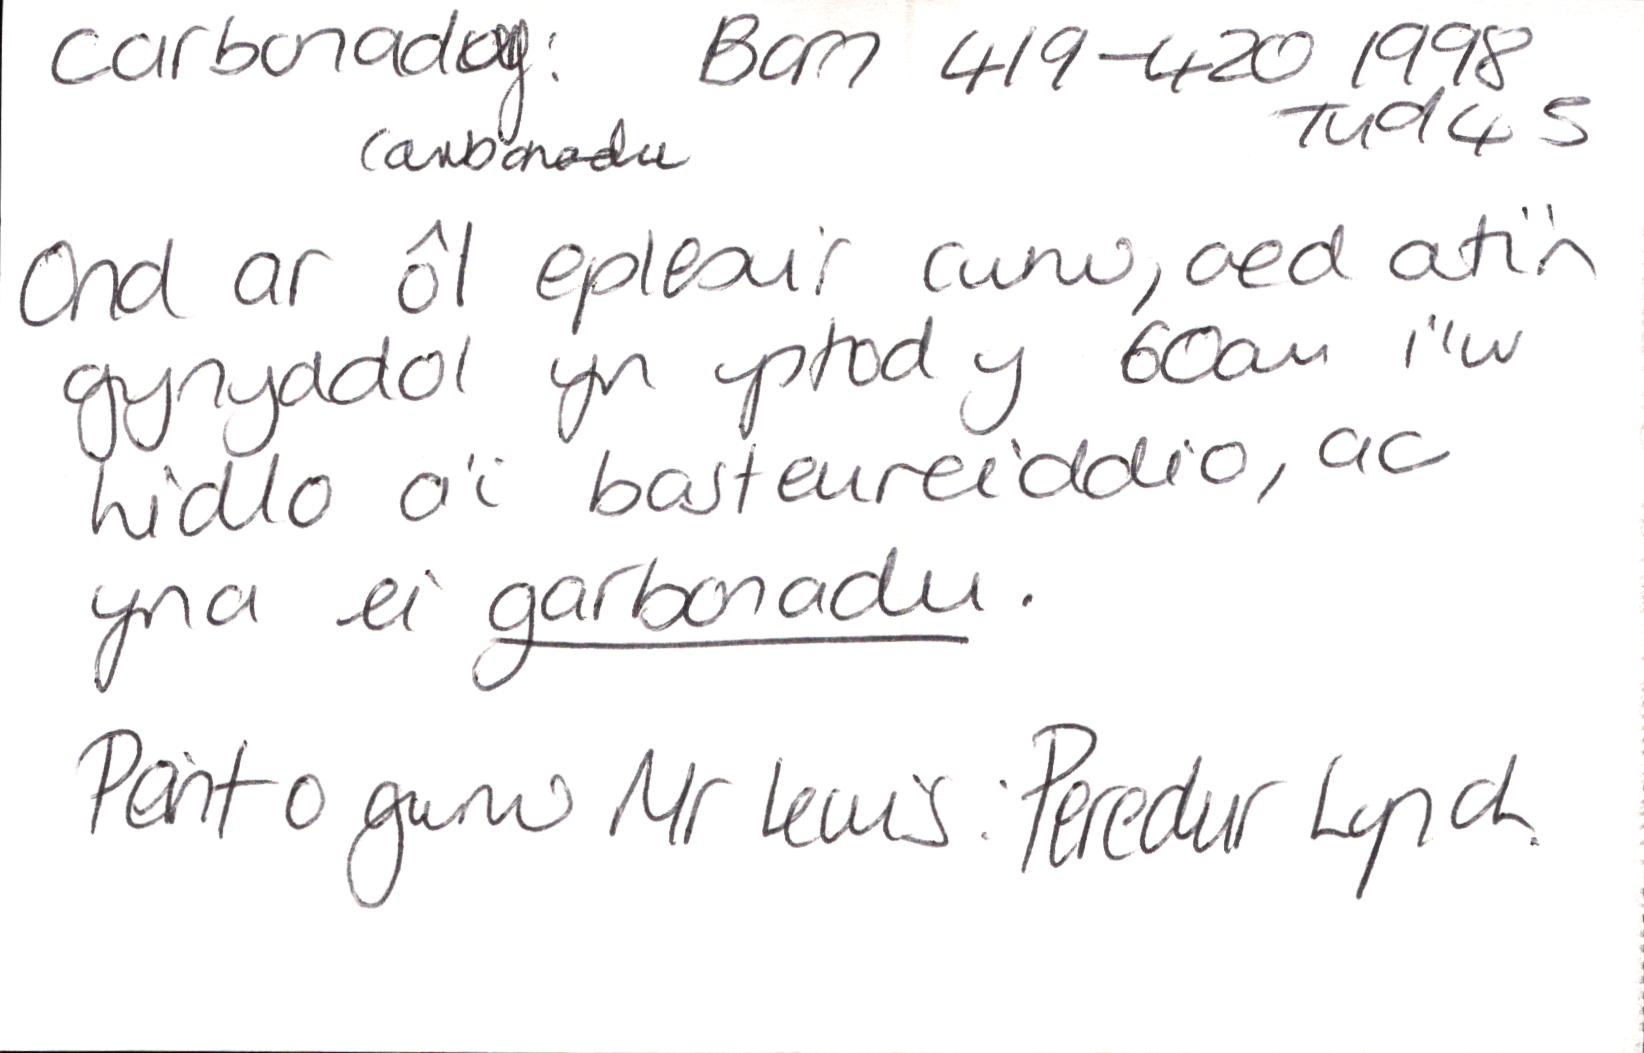 carbonadog: Barn 419-420 1998
Tud 45
carbonadu
Ond ar ôl eplesu'r cwrw, aed ati'n
gynyddol yn ystod y 60au i'w
hidlo a'i basteureiddio, ac
yna ei garbonadu.
Peint o gwrw Mr Lewis: Peredur Lynch.